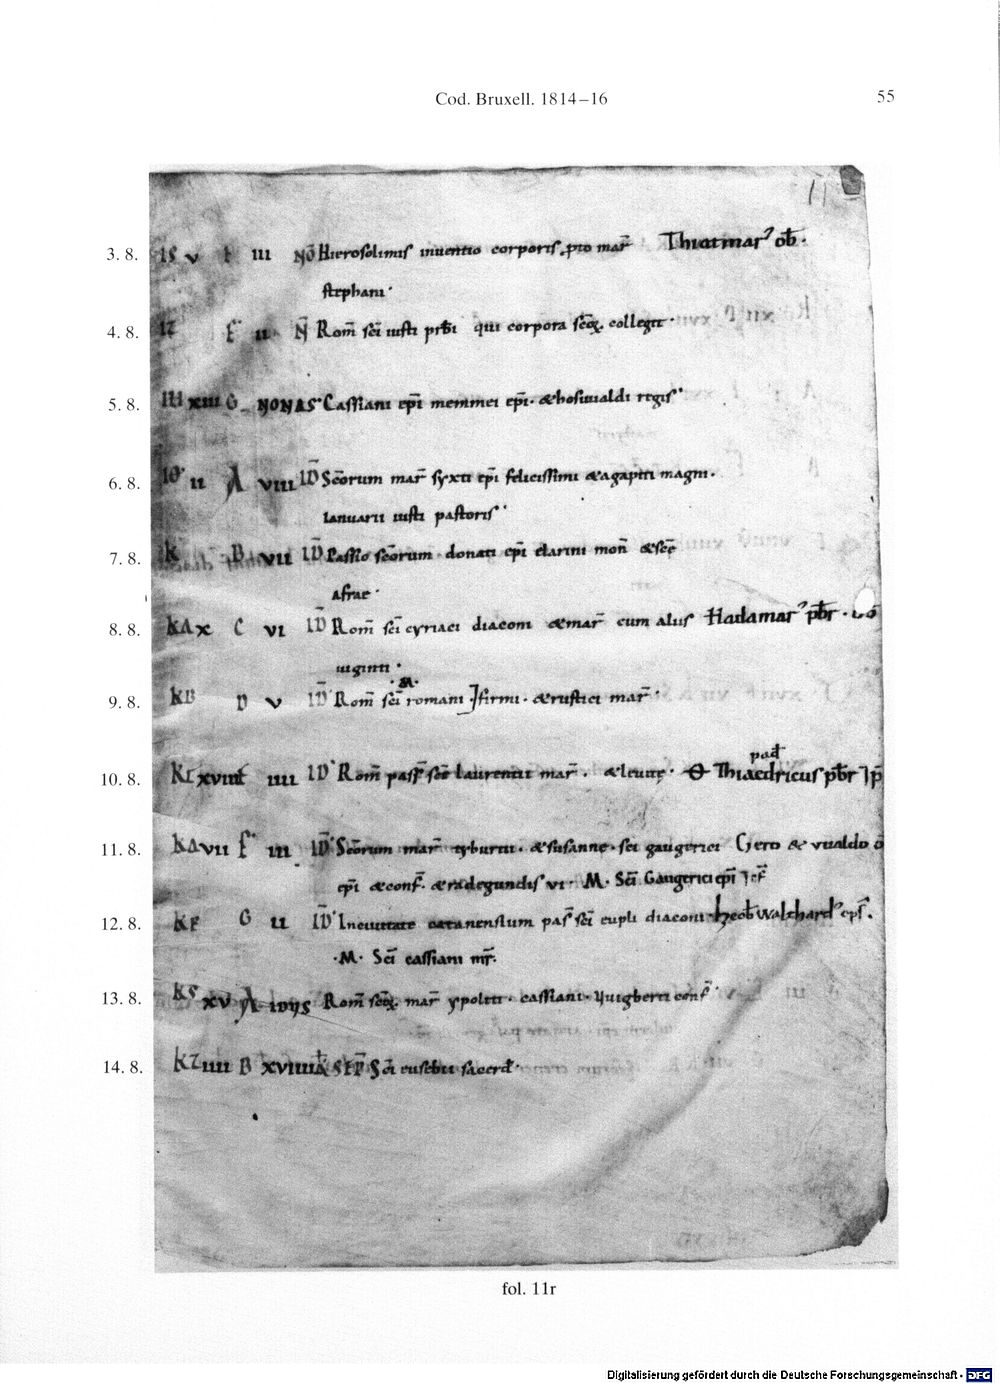 Cod. Bruxell. 1814–16
55
11
3. 8. IS V III NŌ Hierosolimis inuentio corporis. pto mar̄ Thiatmar' ob̄.
stephani.
4. 8. F II N̄ Rom̄ sc̄i iusti prb̄i qui corpora sc̄oꝝ. collegit.
5. 8. III XIII G NONAS Cassiani ep̄i memmei ep̄i. & hosuualdi regis.
6. 8. II A VIII ID̄ Sc̄orum mar̄ syxti ep̄i felicissimi & agapiti magni.
Ianuarii iusti pastoris.
7. 8. K B VII ID̄ Passio sc̄orum. donati ep̄i & larini mon̄ & sc̄ę
afrae.
8. 8. KA X C VI ID̄ Rom̄ sc̄i cyriaci diaconi & mar̄ cum aliis Hadamar' pb̄r.
uiginti.
9. 8. KB D V ID̄ Rom̄ sc̄i romani .M. firmi. & rustici mar̄.
pad̄
10. 8. KΓ XVIII IIII ID' Rom̄ pass̄ sc̄i laurentii mar̄. & leuitę. Thiaedricus pb̄r
11. 8. KΔ VII F III ID̄ Sc̄orum mar̄ tyburtii. & susannę. sc̄i gaugerici Gero & vualdo ō
ep̄i & conf̄. & radegundis vi. M. Sc̄i Gaugerici ep̄i
12. 8. KE G II ID̄ In ciuitate catanensium pas̄ sc̄i eupli diaconi. heob̄ Walthard' eps̄.
.M. Sc̄i cassiani mr̄.
13. 8. KS XV A IDUS Rom̄ sc̄oꝝ. mar̄ ypoliti. cassiani. Vuigberti conf̄.
14. 8. KZ IIII B XVIIII K̄ SEP̄ Sc̄i eusebii sacerd̄.
fol. 11r
Digitalisierung gefördert durch die Deutsche Forschungsgemeinschaft - DFG